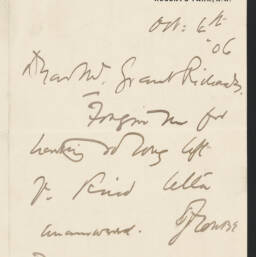 Oct: 6th
'06
Dear Mr. Grant Richards,
Forgive me for
having so long left
yr. kind letter
unanswered. Of course